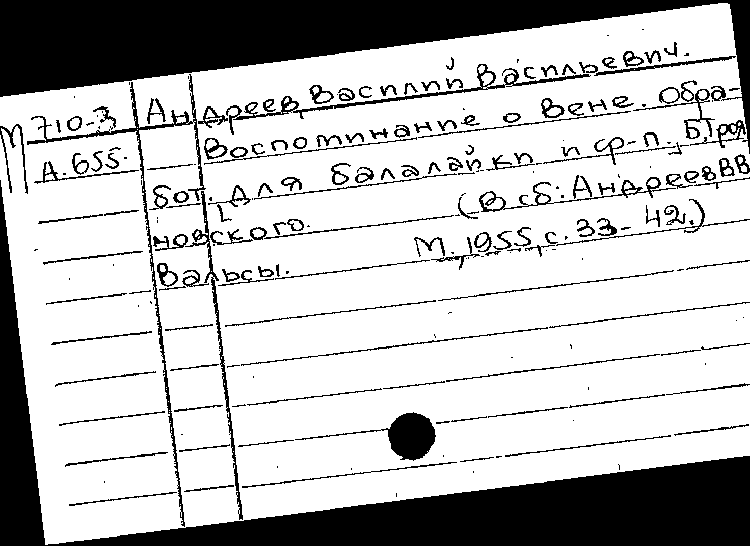 М 710-3 Андреев, Василий Васильевич.
А.655. Воспоминание о Вене. Обра-
бот. для балалайки и ср-п., Б. Троя
новского. (В сб: Андреев, В В
Вальсы. М., 1955, с. 33-42.)